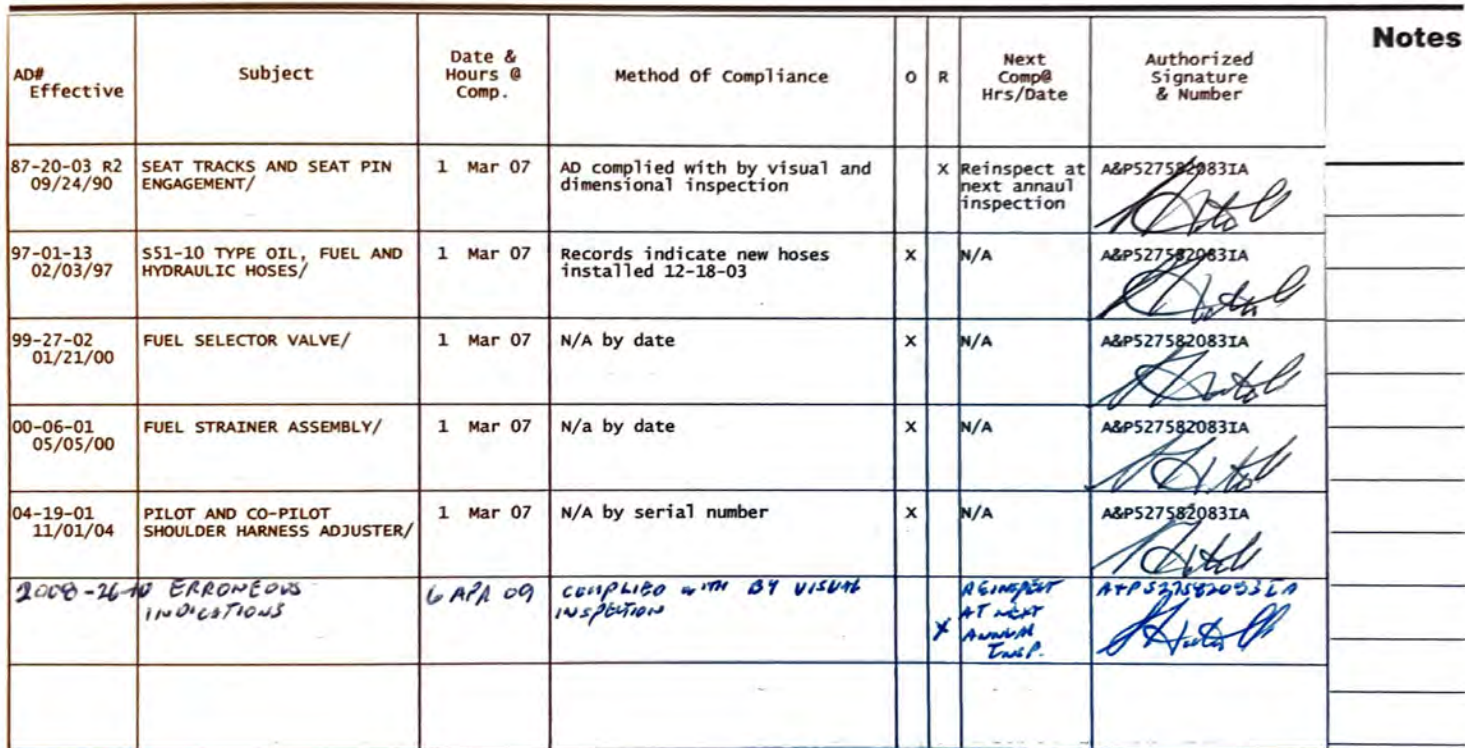 Notes
AD#
Effective
Subject
Date &
Hours @
Comp.
Method Of Compliance
O
R
Next
Comp@
Hrs/Date
Authorized
Signature
& Number
87-20-03 R2
09/24/90
SEAT TRACKS AND SEAT PIN
ENGAGEMENT/
1 Mar 07
AD complied with by visual and
dimensional inspection
X
Reinspect at
next annaul
inspection
A&P527582083IA
97-01-13
02/03/97
S51-10 TYPE OIL, FUEL AND
HYDRAULIC HOSES/
1 Mar 07
Records indicate new hoses
installed 12-18-03
X
N/A
A&P527582083IA
99-27-02
01/21/00
FUEL SELECTOR VALVE/
1 Mar 07
N/A by date
X
N/A
A&P527582083IA
00-06-01
05/05/00
FUEL STRAINER ASSEMBLY/
1 Mar 07
N/a by date
X
N/A
A&P527582083IA
04-19-01
11/01/04
PILOT AND CO-PILOT
SHOULDER HARNESS ADJUSTER/
1 Mar 07
N/A by serial number
X
N/A
A&P527582083IA
2008-26-10
ERRONEOUS
INDICATIONS
6 APR 09
COMPLIED WITH BY VISUAL
INSPECTION
X
REINSPECT
AT NEXT
ANNUAL
INSP.
A+P527582083IA